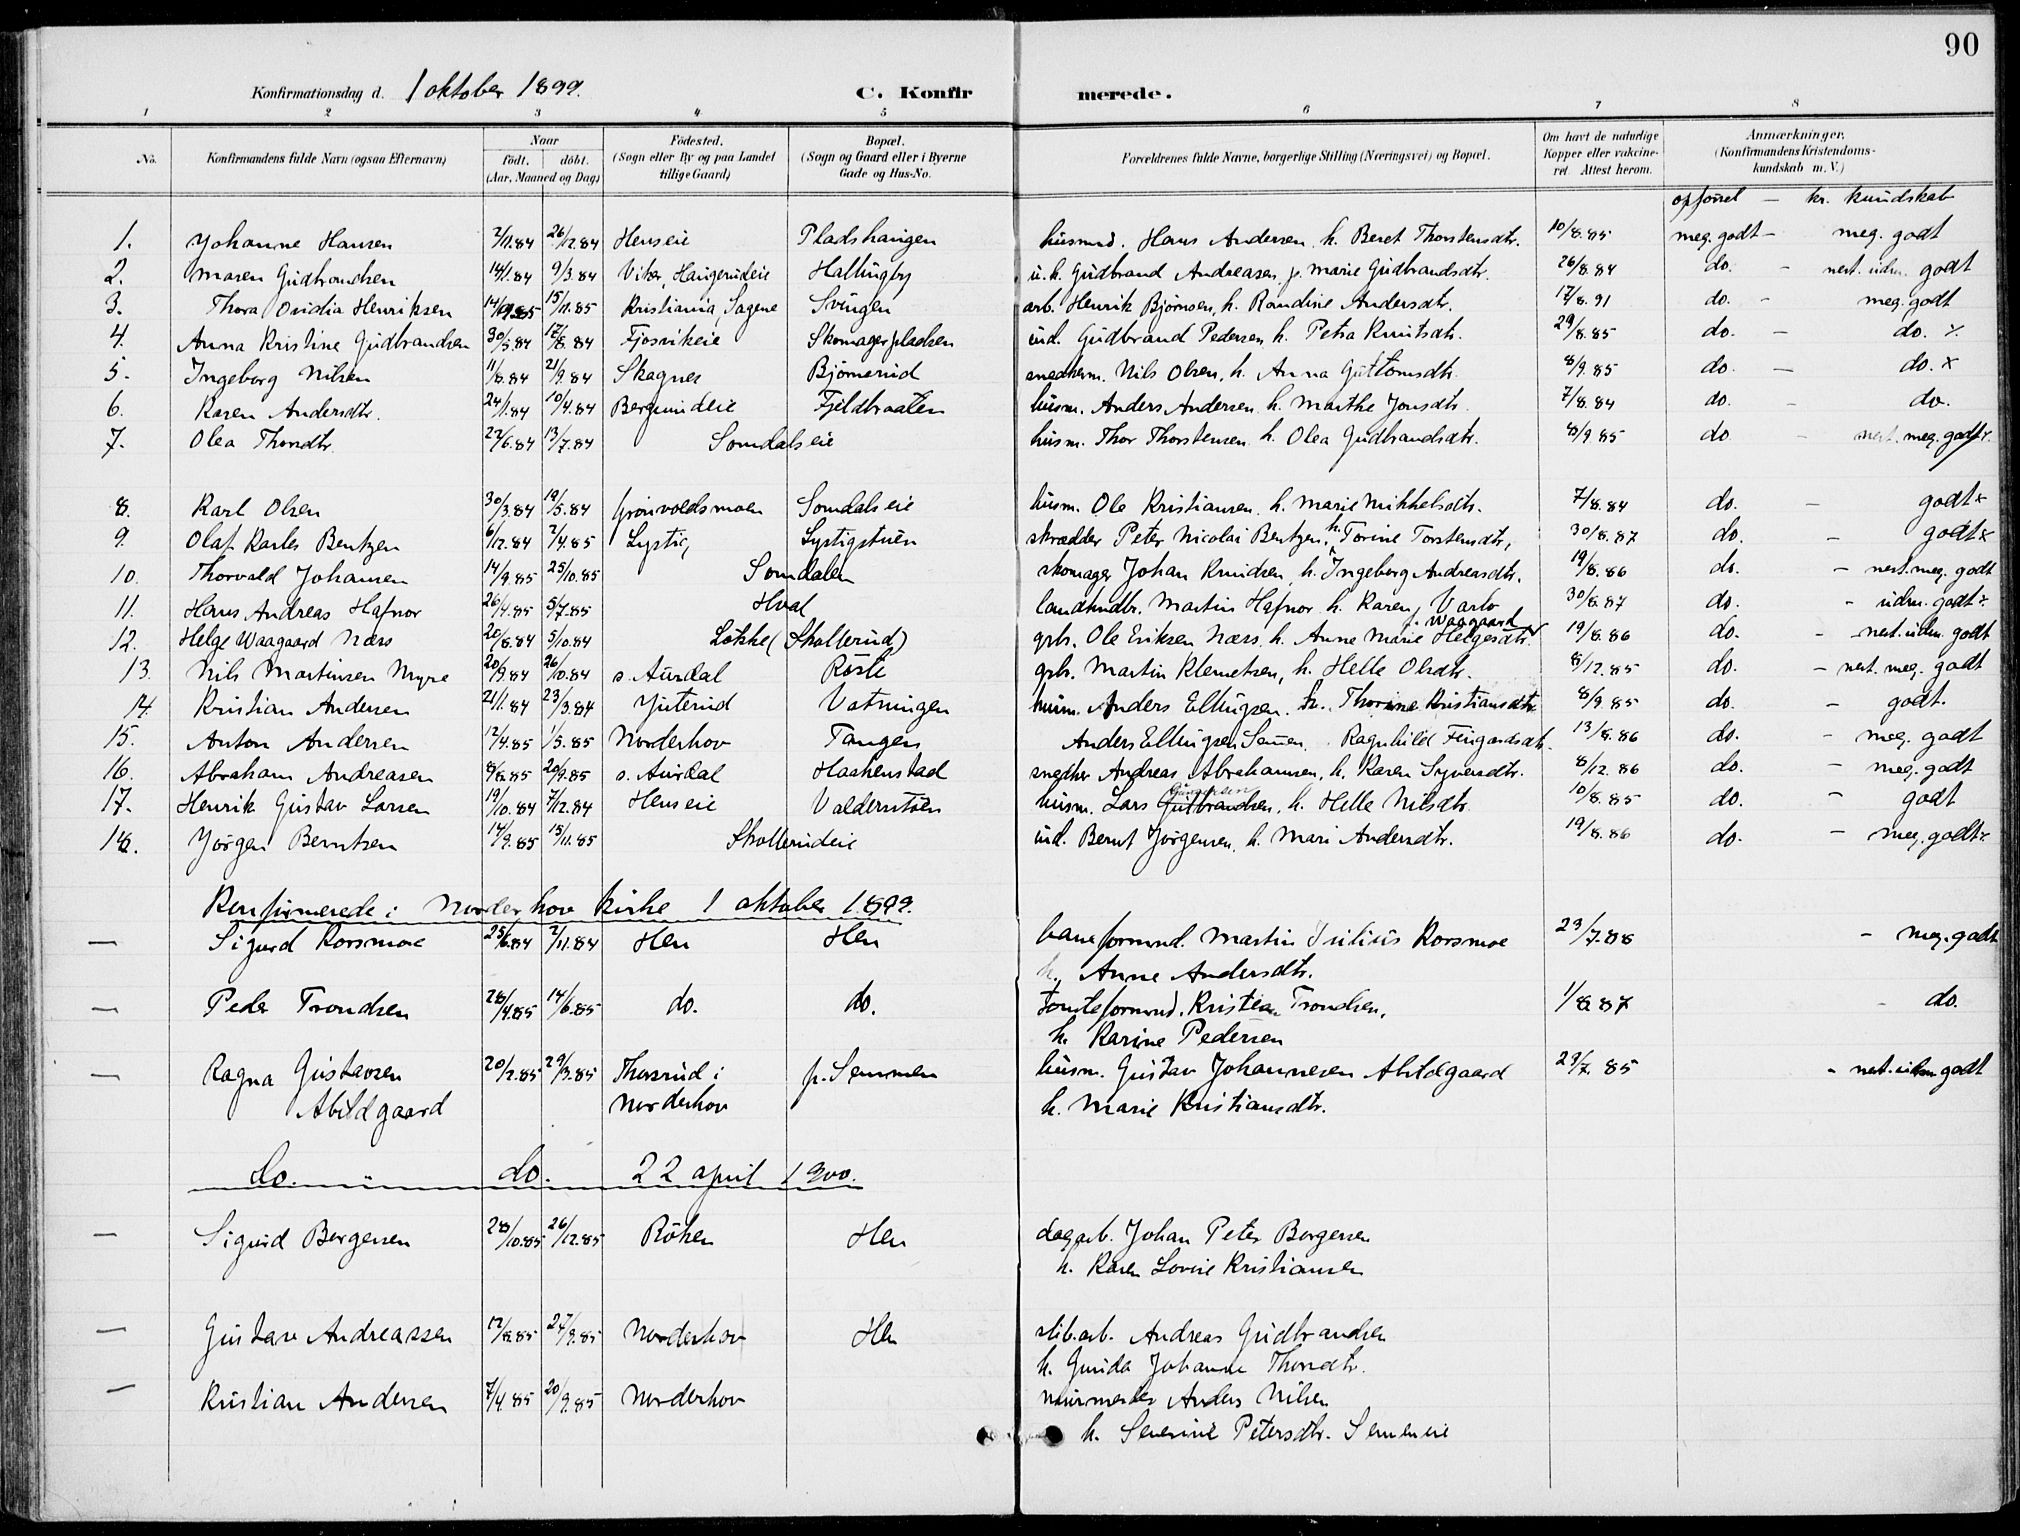 90
Konfirmationsdag d. 1 oktober 1899. C. Konfirmerede.
1 2 3 4 5 6 7 8
No. Konfirmandens fulde Navn (ogsaa Efternavn) Naar födt. döbt. (Aar, Maaned og Dag) Födested. (Sogn eller By og paa Landet tillige Gaard) Bopæl. (Sogn og Gaard eller i Byerne Gade og Hus-No. Forældrenes fulde Navne, borgerlige Stilling (Næringsvei) og Bopæl. Om havt de naturlige Kopper eller vakcineret. Attest herom. Anmærkninger. (Konfirmandens Kristendomskundskab m. V.)
opförsel — kr. kundskab
1. Johanne Hansen 2/11.84 26/12.84 Henseie Pladshaugen husmd. Hans Andersen h. Beret Thorstensdtr. 10/8.85 meg. godt — meg. godt
2. Maren Gudbrandsen 14/1.84 9/3.84 Viker, Haugerudeie Hallingby u.k. Gudbrand Andreasen p. Marie Gudbrandsdtr. 26/8.84 do. — nest. udm. godt
3. Thora Ovidia Henriksen 15/11.85 Kristiania, Sagene Svingen arb. Henrik Bjørnsen, h. Randine Andersdtr. 17/8.91 do. — meg. godt
4. Anna Kristine Gudbrandsen 30/5.84 17/8.84 Fjosvikeie Skomagerpladsen ind. Gudbrand Pedersen h. Petra Knutsdtr. 29/8.85 do. — do. ×
5. Ingeborg Nilsen 11/8.84 21/9.84 Skagnes Bjørnerud snedkerm. Nils Olsen, h. Anna Guttomsdtr. 8/9.85 do. — do. ×
6. Karen Andersdtr. 24/1.84 10/4.84 Bergsundeie Fjeldbraaten husm. Anders Andersen h. Marthe Jonsdtr. 7/8.84 do. — do.
7. Olea Thorsdtr. 22/6.84 13/7.84 Somdalseie husm. Thor Thorstensen h. Olea Gudbrandsdtr. 8/9.85 do — nest. meg. godt ×.
8. Karl Olsen 30/3.84 18/5.84 Grönvoldsmoen Somdalseie husm. Ole Kristiansen h. Marie Mikkelsdtr. 7/8.84 do. — godt ×
9. Olaf Karles Bentzen 6/12.84 7/4.85 Lystig, Lystigstuen skrædder Peter Nicolai Bentzen, h. Torine Torstensdtr, 30/8.87 do. — godt ×
10. Thorvald Johansen 14/9.85 25/10.85 Somdalen skomager Johan Knudsen, h. Ingeborg Andreasdtr. 19/8.86 do. — nest. meg. godt
11. Hans Andreas Hafnor 26/4.85 5/7.85 Hval landhndlr. Martin Hafnor h. Karen, Varlo 30/8.87 do. — udm. godt ×.
12. Helge Waagaard Næss 20/8.84 5/10.84 Lökke (Skollerud) grb. Ole Eriksen Næss. h. Anne Marie Helgesdtr. f. Waagaard 19/8.86 do. — nest. udm. godt
13. Nils Martinsen Myre 20/9.84 26/10.84 s. Aurdal Röste grb. Martin Klemetsen, h. Helle Olsdtr. 8/12.85 do. — nest meg. godt
14. Kristian Andersen 21/1.84 23/3.84 Juterud Vatningen husm. Anders Ellingsen. h. Thorine Kristiansdtr. 8/9.85 do. — godt.
15. Anton Andersen 12/4.85 1/5.85 Norderhov Tangen Anders Ellingsen Semen. Ragnhild Fingarsdtr. 13/8.86 do. — meg. godt
16. Abraham Andreasen 8/8.85 20/9.85 s. Aurdal Haskenstad snedker Andreas Abrahamsen, h. Karen Syversdtr. 8/12.86 do. — meg. godt
17. Henrik Gustav Larsen 19/10.84 7/12.84 Henseie Valdersstöen husm. Lars Gudbrandsen, h. Helle Nilsdtr. 10/8.85 do. — godt
18. Jörgen Berntsen 14/9.85 15/11.85 Skollerudeie ind. Bernt Jörgensen, h. Mari Andersdtr. 19/8.86 do. — meg. godt ×.
Konfirmerede i Norderhov kirke 1 oktober 1899.
— Sigurd Korsmoe 25/6.84 2/11.84 Hen Hen baneformnd. Martin Julius Korsmoe 23/7.88 — meg. godt
h. Anne Andersdtr.
— Peder Trondsen 28/4.85 14/6.85 do. do. tomteformnd. Kristian Trondsen, 1/8.87 — do.
h. Karine Pedersen
— Ragna Gustavsen 20/2.85 29/3.85 Thorsrud i p. Semmen husm. Gustav Johannesen Abildgaard 29/7.85 — nest. udm. godt
Abildgaard Norderhov h. Marie Kristiansdtr.
do. — do. 22 april 1900.
— Sigurd Bergersen 28/10.85 26/12.85 Röken Hen dagarb. Johan Peter Bergersen
h. Karen Lovise Kristiansen
— Gustav Andreassen 12/8.85 27/9.85 Norderhov Hen slib.arb. Andreas Gudbrandsen
h. Gunda Johanne Thorsdtr.
— Kristian Andersen 7/4.85 20/9.85 Norderhov murmester Anders Nilsen
h. Severine Petersdtr. Semeneie